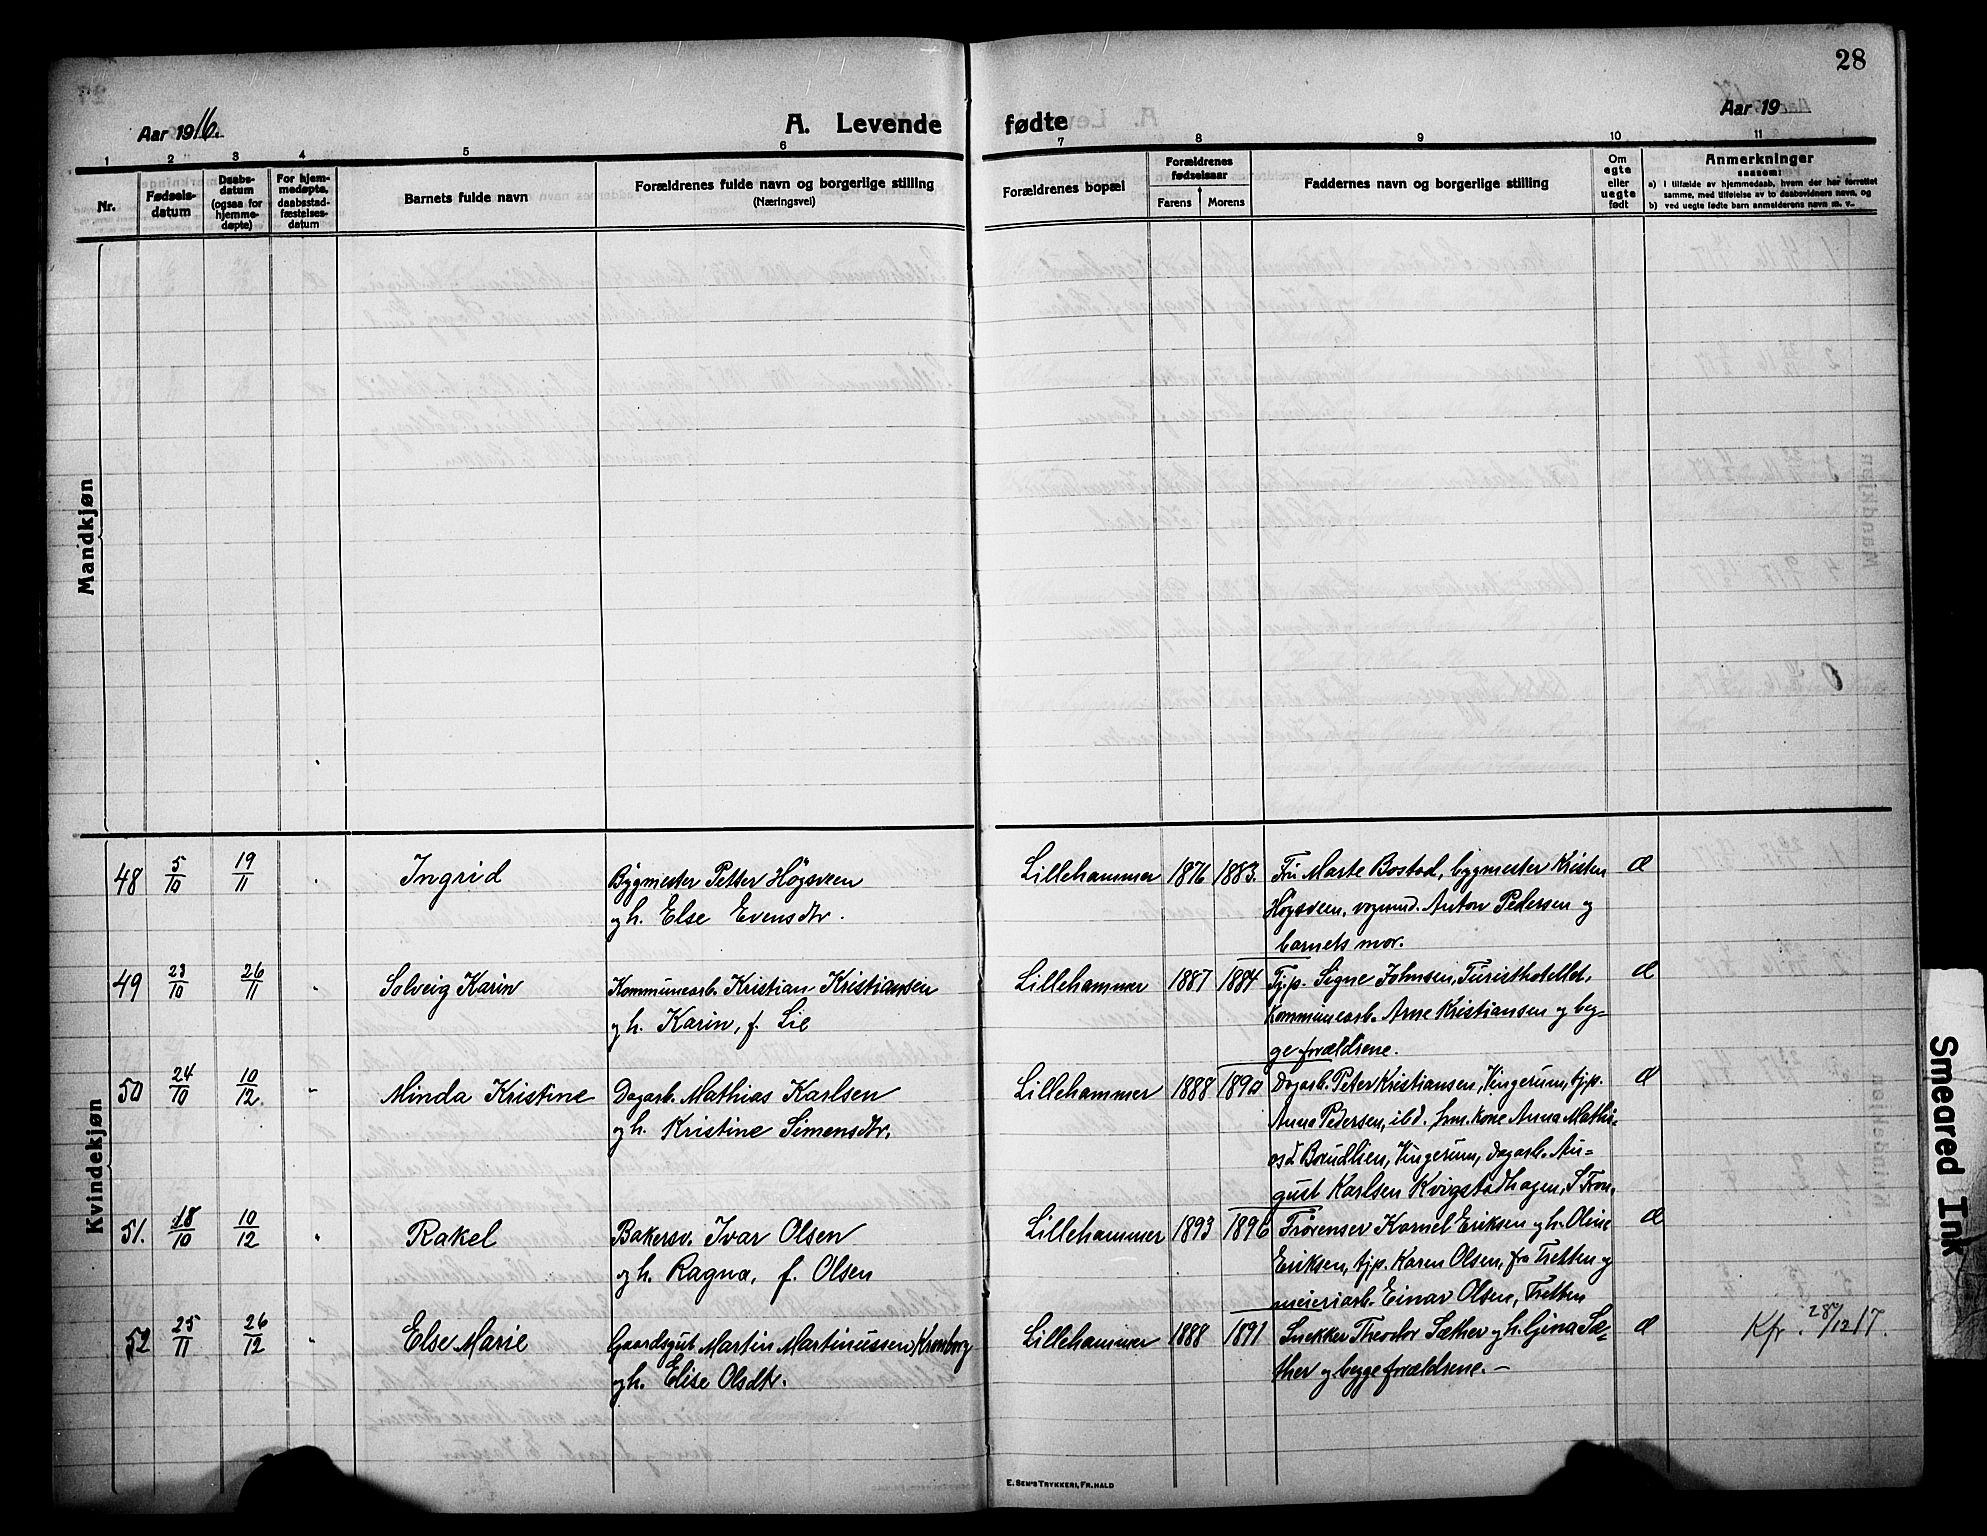 28
Aar 1916.
A. Levende fødte
Aar 19
1 2 3 4 5 6 7 8 9 10 11
Nr.
Fødsels-
datum
Daabs-
datum
(ogsaa for
hjemme-
døpte)
For hjem-
medøpte,
daabsstad-
fæstelses-
datum
Barnets fulde navn
Forældrenes fulde navn og borgerlige stilling
(Næringsvei)
Forældrenes bopæl
Forældrenes
fødselsaar
Farens Morens
Faddernes navn og borgerlige stilling
Om
egte
eller
uegte
født
Anmerkninger
saasom:
a) i tilfælde av hjemmedaab, hvem der har forrettet
samme, med tilføielse av to daabsvidners navn, og
b) ved uegte fødte barn anmelderens navn m. v.
Mandkjøn
Kvindekjøn
48 5/10 19/11 Ingrid Bygmester Petter Høgsveen Lillehammer 1876 1883. Fru Marte Bostad, bygmester Kristen
og h. Else Evensdtr. Høgsveen, vognmd. Anton Pedersen og
barnets mor.
49 23/10 26/11 Solveig Karin Kommunearb. Kristian Kristiansen Lillehammer 1887 1884 Tj.p. Signe Johnsen, Turisthotellet,
og h. Karin, f. Lie Kommunearb. Arne Kristiansen og beg-
ge forældrene.
50 24/10 10/12. " Minda Kristine Dagarb. Mathias Karlsen Lillehammer 1888 1890 Dagarb. Peter Kristiansen, Vingerum, tjp.
og h. Kristine Simensdtr. Anna Pedersen, ibd. hm. kone Anna Mathi-
Vingerum, Dagarb. Au-
gust Karlsen Kvigstadhagen,
51. 18/10 10/12 " Rakel Bakersv. Ivar Olsen Lillehammer 1893 1896 Kornel Eriksen og h. Oline
og h. Ragna, f. Olsen Eriksen, tjp. Karen Olsen, fra Tretten og
meieriarb. Einar Olsen, Tretten
52 25/11 26/12 " Else Marie Gaardsgut. Martin Martinussen Kronborg Lillehammer 1888 1891 Snekker Theodor Sæther og h. Gina Sæ-
og h. Elise Olsdtr. ther og begge forældrene. –
Kfr. 28/12 17.
E. Sem's Trykkeri, Fr.hald
Smeared Ink